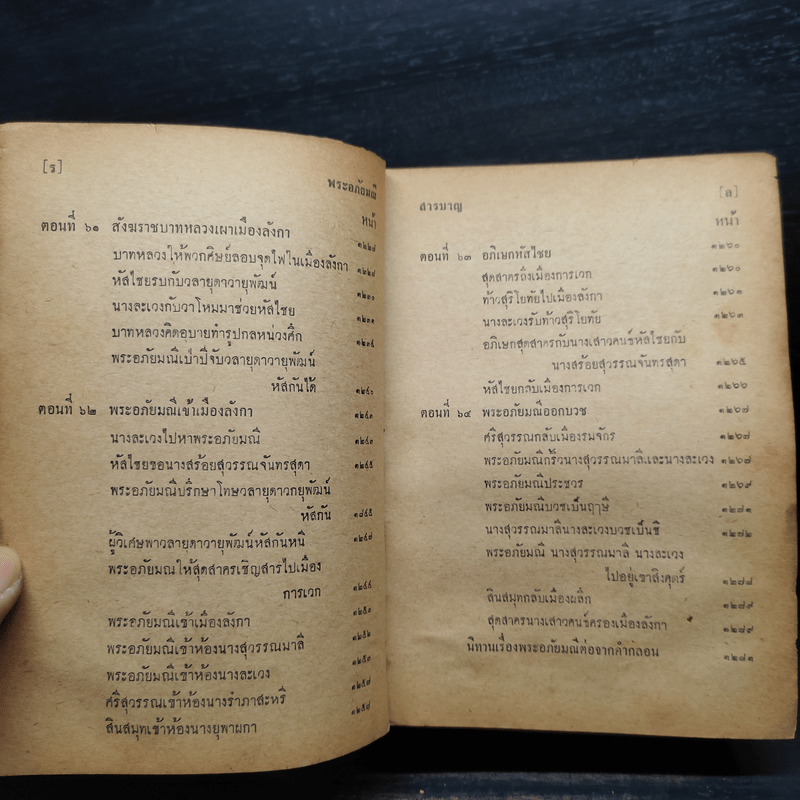 [ร]
พระอภัยมณี
หน้า
ตอนที่ ๖๑ สังฆราชบาทหลวงเผาเมืองลังกา ๑๒๒๘
บาทหลวงให้พวกศิษย์ลอบจุดไฟในเมืองลังกา ๑๒๒๘
หัสไชยรบกับวลายุดาวายุพัฒน์ ๑๒๓๐
นางละเวงกับวาโหมมาช่วยหัสไชย ๑๒๓๑
บาทหลวงคิดอุบายทำรูปกลหน่วงศึก
พระอภัยมณีเป่าปี่จับวลายุดาวายุพัฒน์
หัสกันได้ ๑๒๔๐
ตอนที่ ๖๒ พระอภัยมณีเข้าเมืองลังกา ๑๒๔๓
นางละเวงไปหาพระอภัยมณี ๑๒๔๓
หัสไชยขอนางสร้อยสุวรรณจันทรสุดา ๑๒๔๕
พระอภัยมณีปรึกษาโทษวลายุดาวกยุพัฒน์
หัสกัน
ผู้วิเศษพาวลายุดาวายุพัฒน์หัสกันหนี ๑๒๔๗
พระอภัยมณให้สุดสาครเชิญสารไปเมือง
การเวก
พระอภัยมณีเข้าเมืองลังกา
พระอภัยมณีเข้าห้องนางสุวรรณมาลี ๑๒๕๒
พระอภัยมณีเข้าห้องนางละเวง ๑๒๕๓
ศรีสุวรรณเข้าห้องนางรำภาสะหรี ๑๒๕๗
สินสมุทเข้าห้องนางยุพาผกา ๑๒๕๘
สารบาญ
[ล]
หน้า
ตอนที่ ๖๓ อภิเษกหัสไชย ๑๒๖๐
สุดสาครถึงเมืองการเวก ๑๒๖๐
ท้าวสุริโยทัยไปเมืองลังกา ๑๒๖๑
นางละเวงรับท้าวสุริโยทัย ๑๒๖๓
อภิเษกสุดสาครกับนางเสาวคนธ์หัสไชยกับ
นางสร้อยสุวรรณจันทรสุดา ๑๒๖๕
หัสไชยกลับเมืองการเวก ๑๒๖๖
ตอนที่ ๖๔ พระอภัยมณีออกบวช ๑๒๖๗
ศรีสุวรรณกลับเมืองรมจักร ๑๒๖๗
พระอภัยมณีกริ้วนางสุวรรณมาลีและนางละเวง ๑๒๖๘
พระอภัยมณีประชวร ๑๒๖๙
พระอภัยมณีบวชเป็นฤาษี ๑๒๗๑
นางสุวรรณมาลีนางละเวงบวชเป็นชี ๑๒๗๒
พระอภัยมณี นางสุวรรณมาลี นางละเวง
ไปอยู่เขาสิงคุตร์ ๑๒๗๘
สินสมุทกลับเมืองผลึก ๑๒๗๙
สุดสาครนางเสาวคนธ์ครองเมืองลังกา ๑๒๗๙
นิทานเรื่องพระอภัยมณีต่อจากคำกลอน ๑๒๘๑